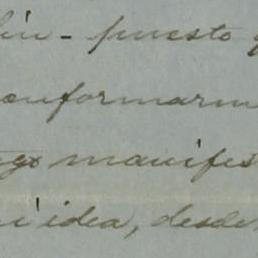 puesto
conformarm
manifes
idea, desde